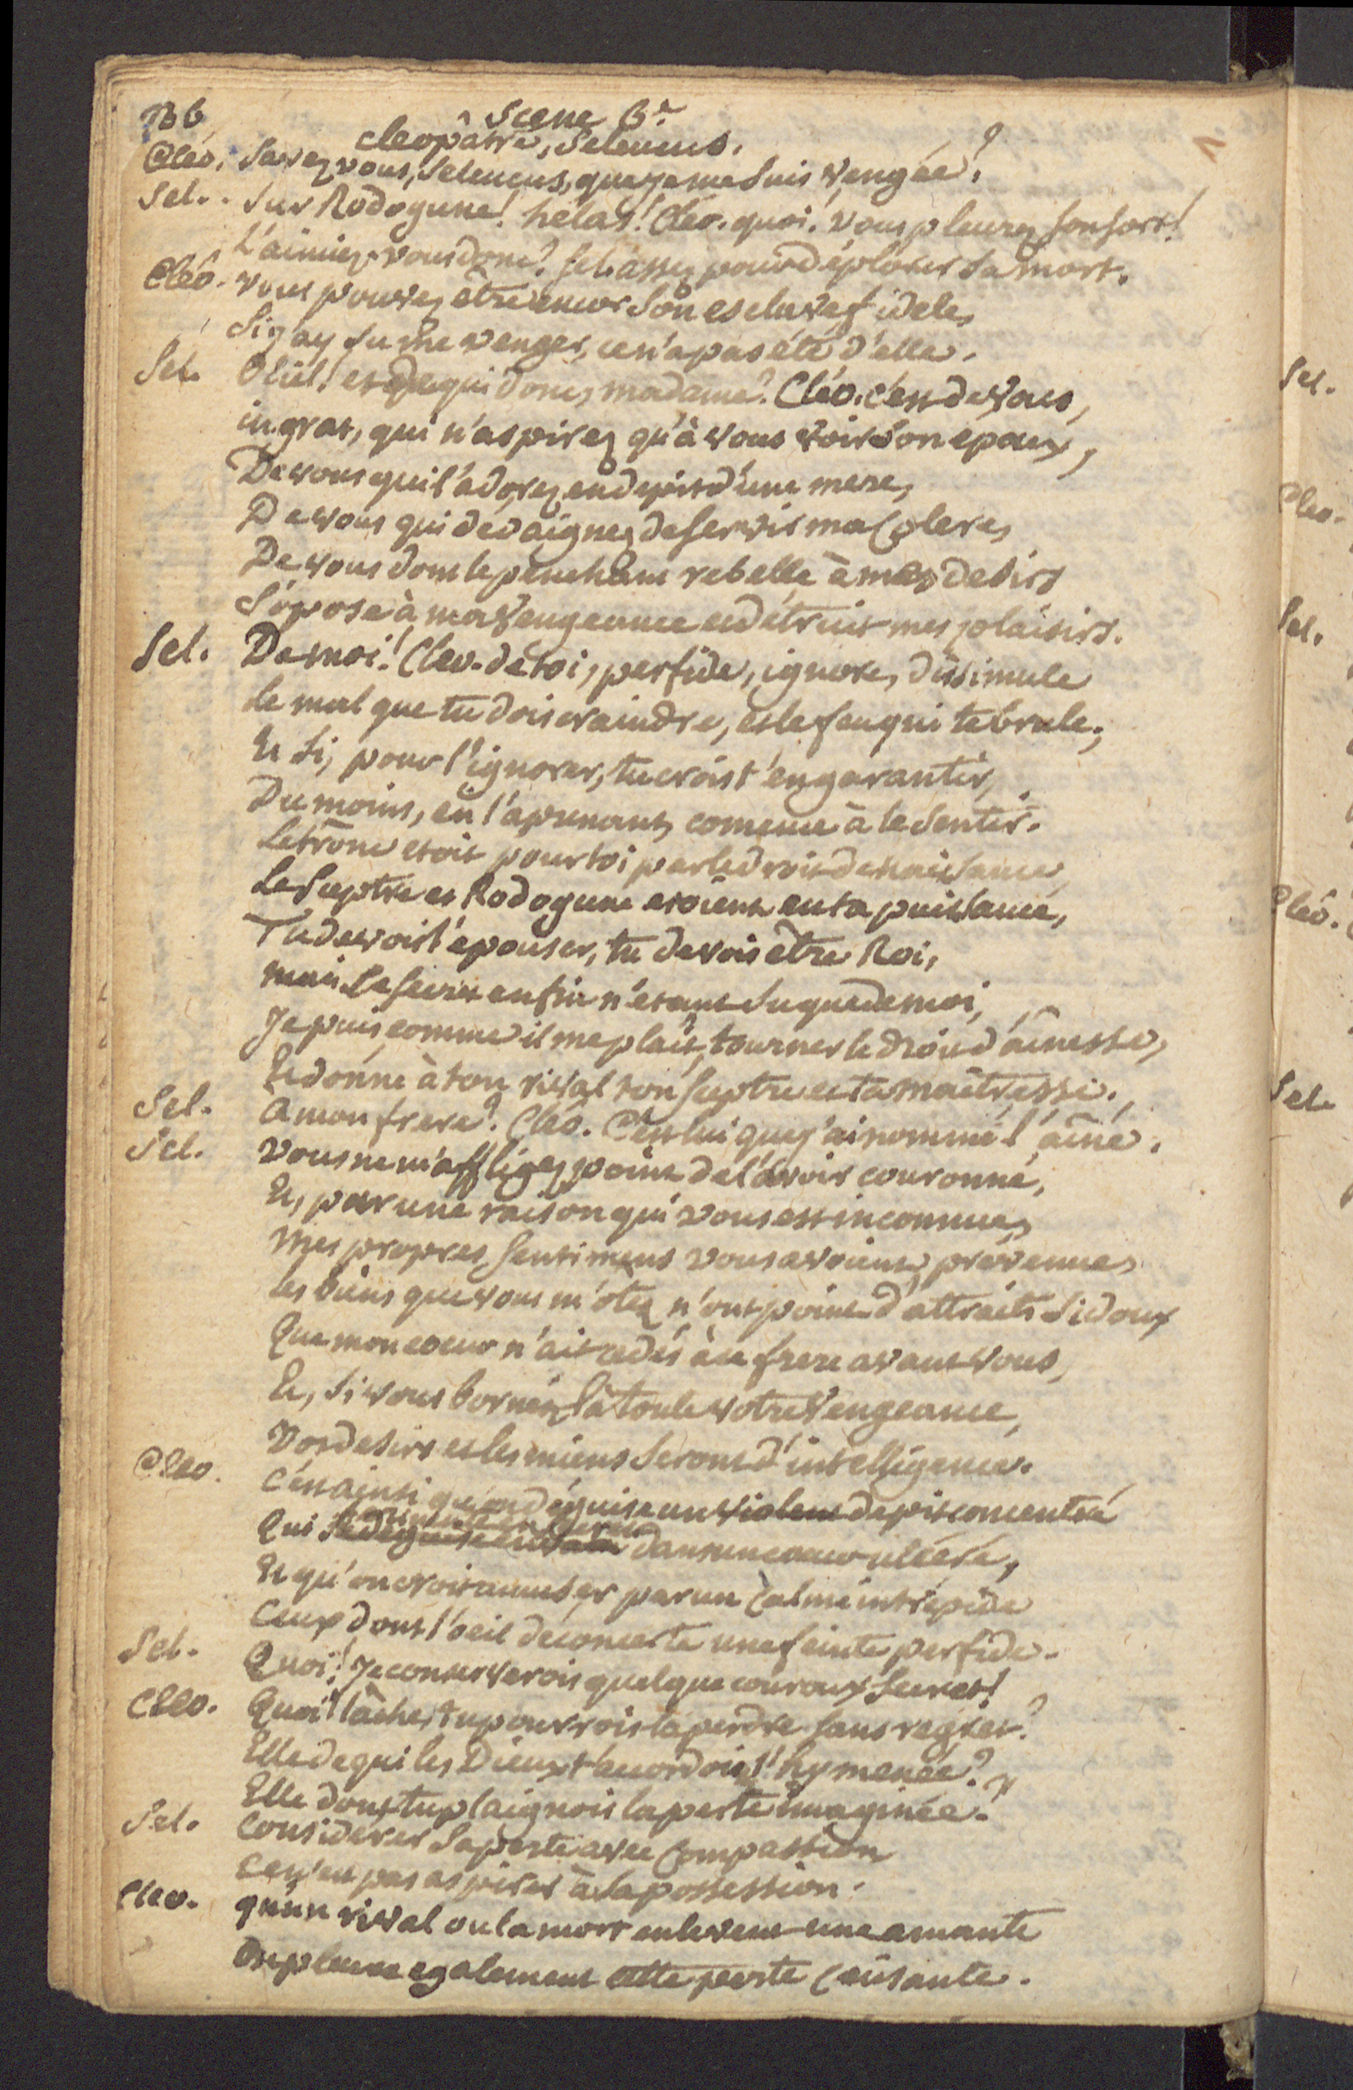 136
Scene 6e
cleopâtre, Seleucus.
Cleo. Savez vous, Seleucus, que je me suis vengée?
Sel. Sur Rodogune! hélas! Cleo. quoi! vous pleurez son sort!
L'aimiez-vous donc? Sel. assez pour déplorer sa mort.
Cleô. vous pouvez être encor son esclave fidele,
Si j'ay su me venger, ce n'a pas été d'elle.
Sel. O Ciel! et de qui donc, madame? Cléo. c'est de vous,
ingrat, qui n'aspirez qu'à vous voir son epoux,
De vous qui l'adorez en depit d'une mere,
De vous qui dedaignez de servir ma Colere,
De vous dont le penchant rebelle à mes desirs
S'opose à ma vengeance et détruit mes plaisirs.
Sel. De moi! Cleo. de toi, perfide, ignore, dissimule
Le mal que tu dois craindre, et le feu qui te brule;
Et si, pour l'ignorer, tu crois t'en garantir,
Du moins, en l'aprenant, comence à le sentir.
Le trône etoit pour toi par le droit de naissance,
Le Sceptre et Rodogune etoient en ta puissance,
Tu devois l'épouser, tu devois être Roi,
mais le secret enfin n'etant su que de moi,
Je puis, comme il me plaît, tourner le droit d'aînesse,
Et donne à ton rival ton sceptre et ta maîtresse.
Sel. A mon frere? Cléo. C'est lui que j'ai nommé l'aîné.
Sel. Vous ne m'affligez point de l'avoir couronné,
Et, par une raison qui vous est inconnue,
Mes propres sentimens vous avoient prévenue,
les biens que vous m'otez n'ont point d'attraits si doux
Que mon coeur n'ait cedés à ce frere avant vous,
Et, si vous bornez là toute votre vengeance,
Vos desirs et les miens seront d'intelligence.
Cleo. C'est ainsi qu'on déguise un violent depit concentré
Qui se deguise en vain dans un coeur ulcéré,
Et qu'on croit amuser par un calme intrépide
Ceux dont l'oeil deconcerte une feinte perfide.
Sel. Quoi! Je conserverois quelque couroux secret!
Cleo. Quoi! lâche, tu pourrois la perdre sans regret?
Elle de qui les Dieux t'accordoient l'hymenée?
Elle dont tu plaignois la perte imaginée?
Sel. Considerer sa perte avec compassion
ce n'est pas aspirer à sa possession.
Cleo. qu'un rival ou la mort enlevent une amante
On pleure egalement cette perte cuisante.
Sel.
Cleo.
Sel.
Cleô.
Sel.